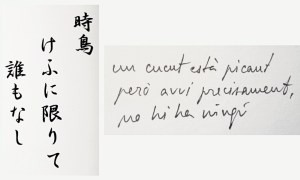 時鳥
けふに限りて
誰もなし
un cucut està picant
però avui precisament,
no hi ha ningú